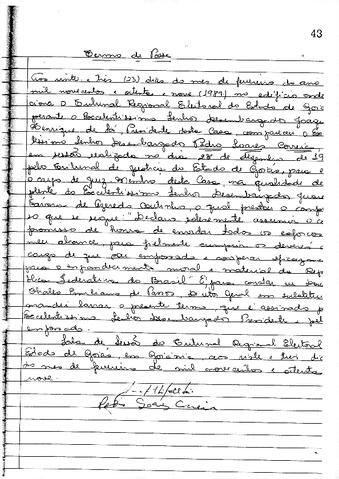 43
Termo de Posse
Aos vinte e três (23) dias do mes de fevereiro do ano
mil novecentos e oitenta e nove (1989) no edifício onde
ciona o Tribunal Regional Eleitoral do Estado de Goi
perante o Excelentíssimo Senhor Desembargador Joaqu
Henrique de Sá, Presidente desta Casa, compareceu o Ex
lentíssimo Senhor Desembargador Pedro Soares Correia,
em sessão realizada no dia 28 de dezembro de 19
pelo Tribunal de Justiça do Estado de Goiás, para e
o cargo de Juiz Membro desta Casa, na qualidade de
plente do Excelentíssimo Senhor Desembargador
de Azeredo Coutinho, o qual prestou o compr
so que se segue: "Declaro solenemente assumir o c
promisso de honra de envidar todos os esforços
meu alcance, para fielmente cumprir os deveres
cargo de que sou empossado e cooperar eficazmente
para o engrandecimento moral e material da Rep
blica Federativa do Brasil". E, para constar eu
Emiliano de Diretor Geral em substitui
mandei lavrar o presente termo, que é assinado p
Excelentíssimo Senhor Desembargador Presidente e pel
empossado.
Sala de Sessões do Tribunal Regional Eleitoral
Estado de Goiás, em Goiânia, aos vinte e três di
do mes de fevereiro de mil novecentos e oitenta
nove.
Pedro Soares Correia